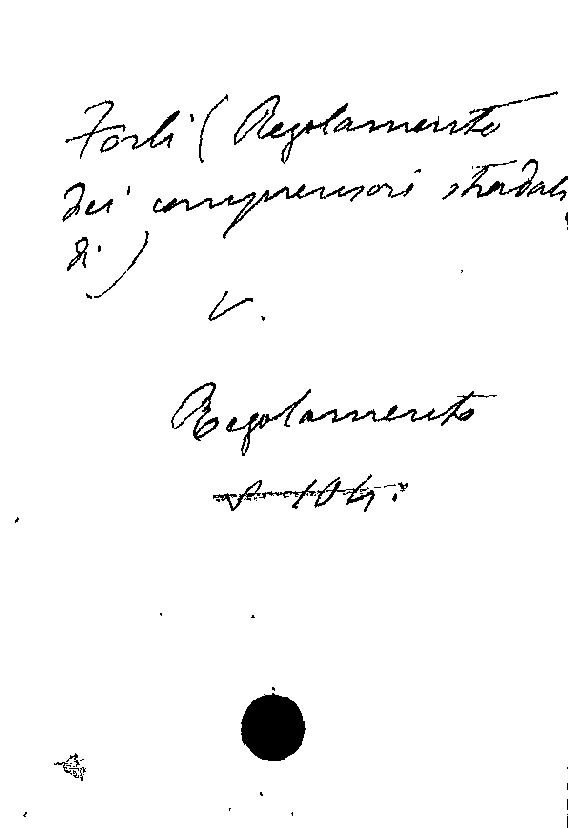 Forlì (Regolamento
dei comprensori stradali
di)
V.
Regolamento